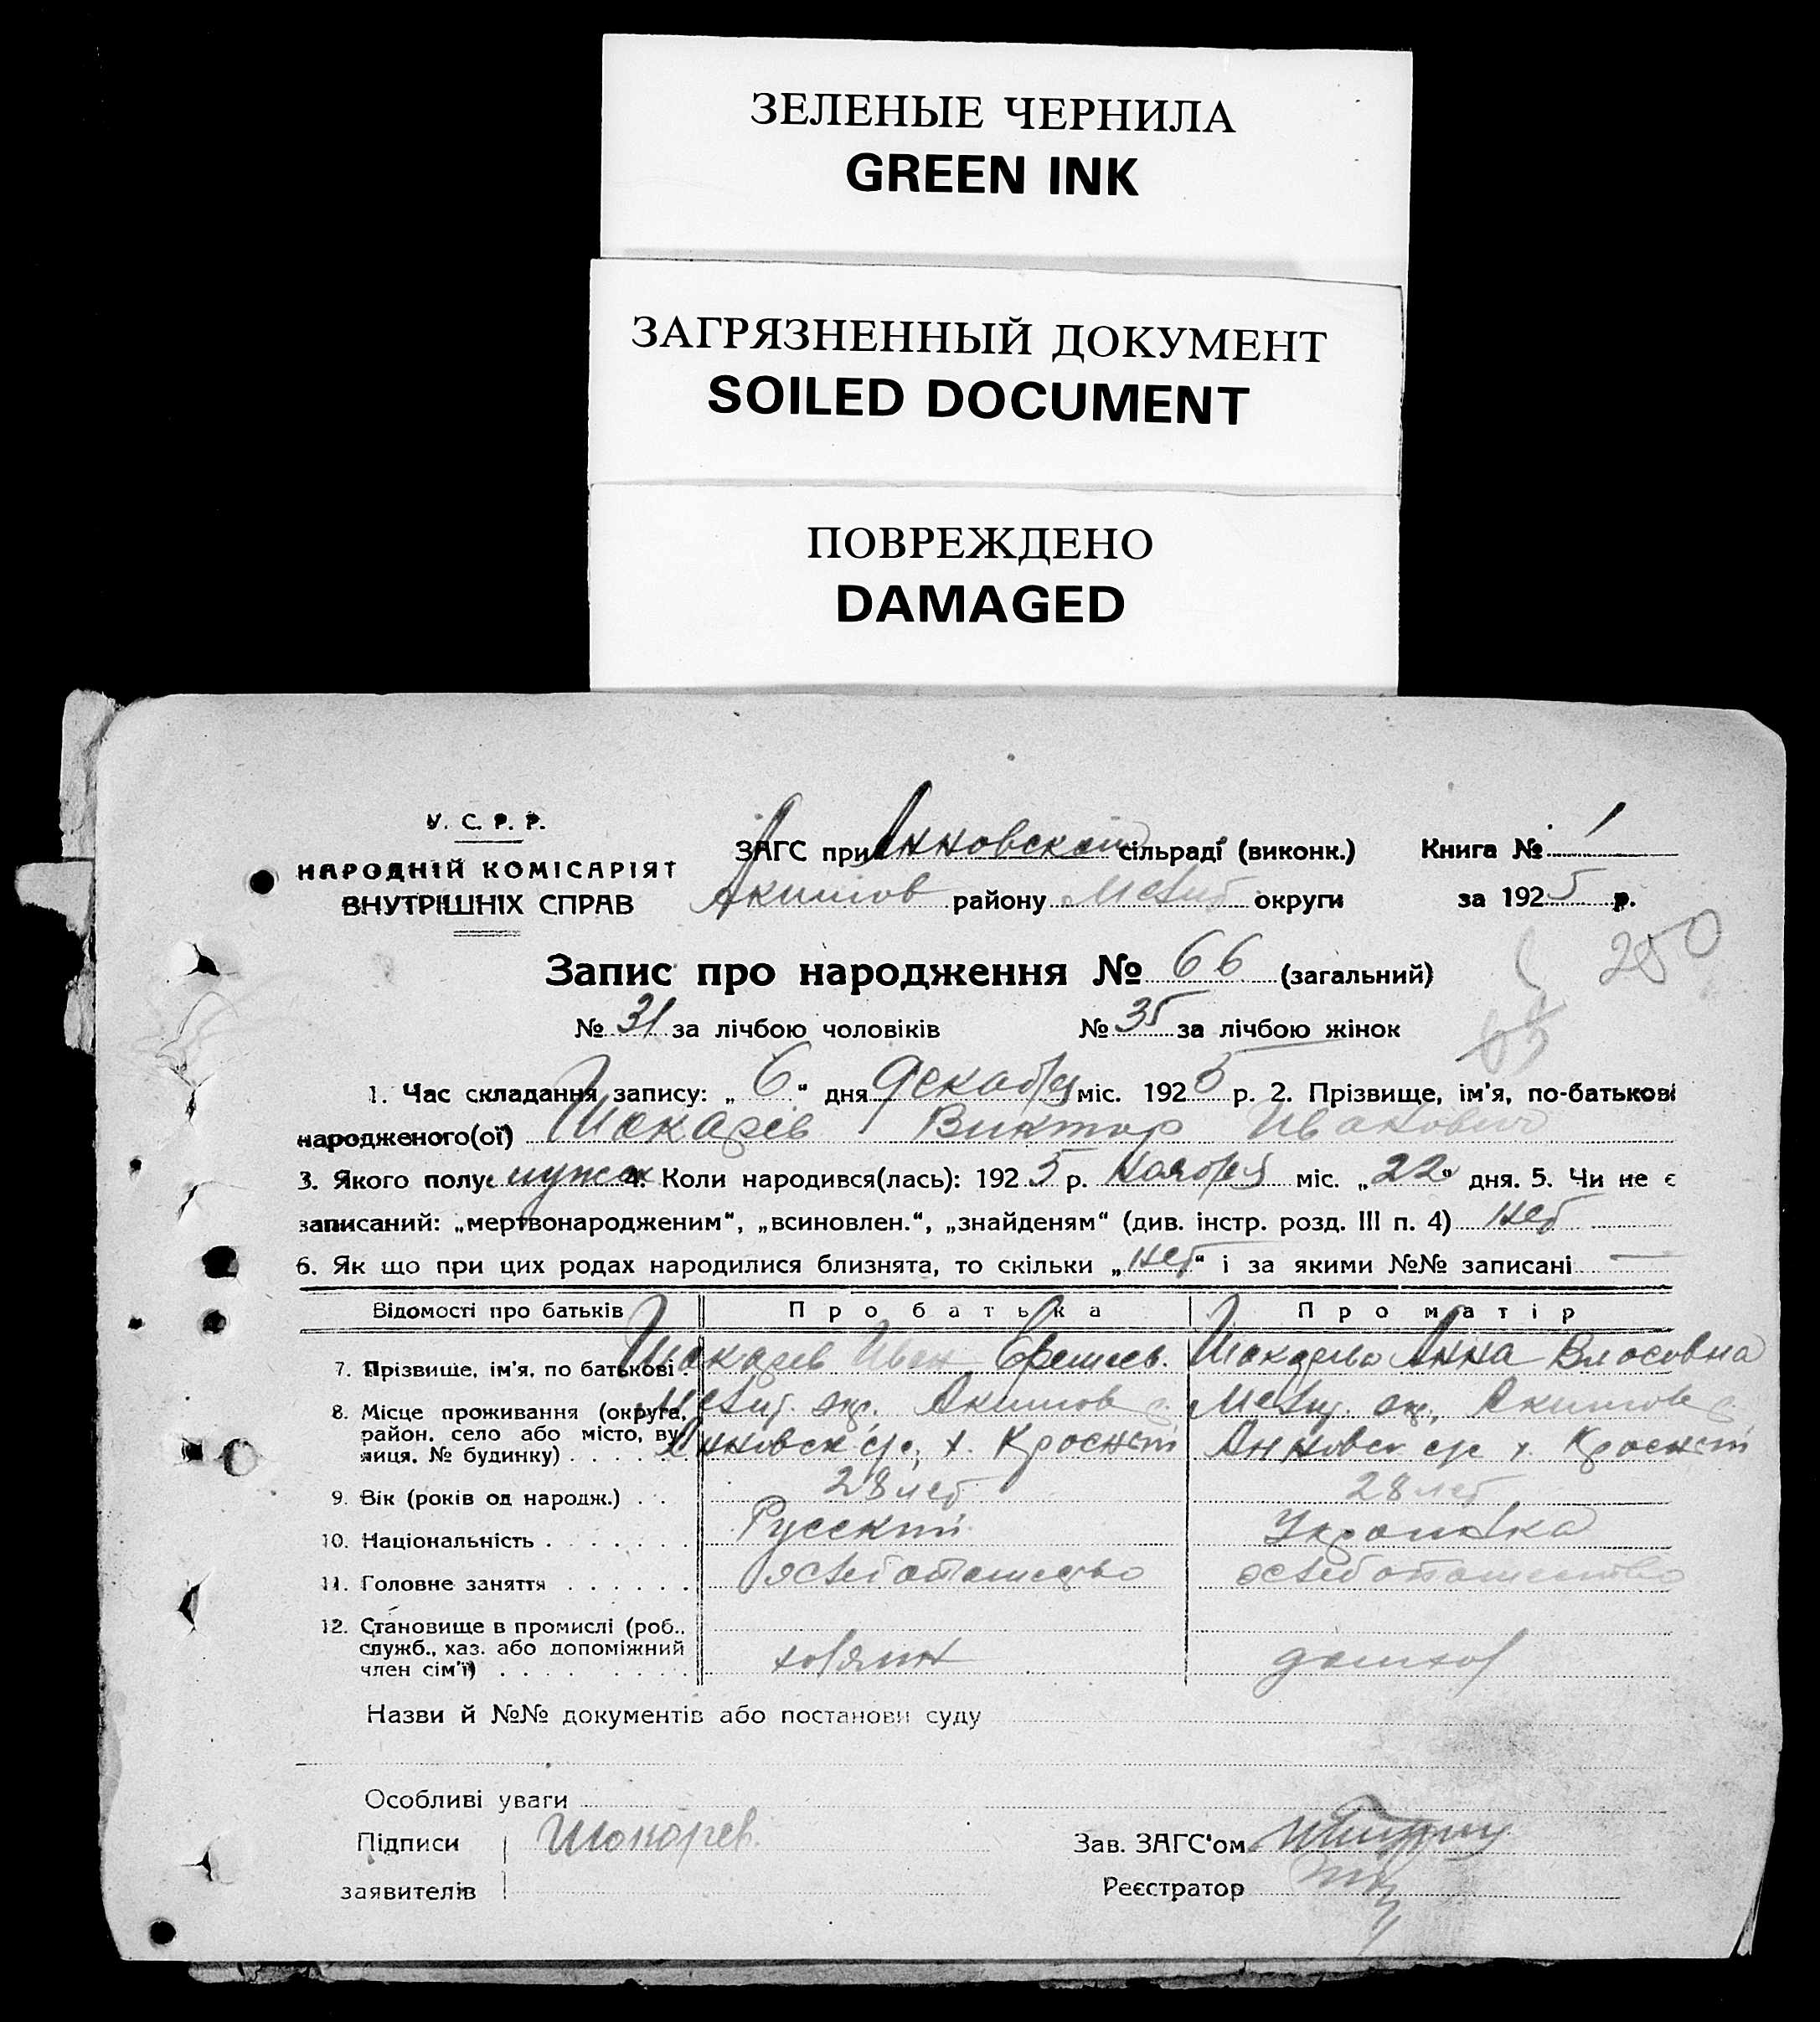 ЗЕЛЕНЫЕ ЧЕРНИЛА
GREEN INK
ЗАГРЯЗНЕННЫЙ ДОКУМЕНТ
SOILED DOCUMENT
ПОВРЕЖДЕНО
DAMAGED
У. С. Р. Р.
НАРОДНІЙ КОМІСАРІЯТ
ВНУТРІШНІХ СПРАВ
ЗАГС при Анновской сільраді (виконк.) Книга № 1
Акимов району Мелит округи за 1925 р.
250
Запис про народження № 66 (загальний)
№ 31 за лічбою чоловіків № 35 за лічбою жінок
1. Час складання запису: „6“ дня декабря міс. 1925 р. 2. Прізвище, ім'я, по-батькові
народженого(ої) Шокарев Виктор Иванович
3. Якого полу: мужск 4. Коли народився(лась): 1925 р. ноября міс. „22“ дня. 5. Чи не є
записаний: „мертвонародженим“, „всиновлен.“, „знайденям“ (див. інстр. розд. III п. 4) нет
6. Як що при цих родах народилися близнята, то скільки „нет“ і за якими №№ записані —
Відомості про батьків Про батька Про матір
7. Прізвище, ім'я, по батькові. Шокарев Иван Шокарева Анна Власовна
8. Місце проживання (округа, Мелит. окр. Акимов р. Мелит. окр. Акимов р.
район, село або місто, ву- Анновск с/с, х. Анновск с/с х.
лиця, № будинку)
9. Вік (років од народж.) 28 лет 28 лет
10. Національність Русский Украинка
11. Головне заняття хлебопашество хлебопашество
12. Становище в промислі (роб.,
служб., хаз. або допоміжний хозяин домхоз
член сім'ї)
Назви й №№ документів або постанови суду
Особливі уваги
Підписи Шокарев. Зав. ЗАГС'ом
заявителів Реєстратор